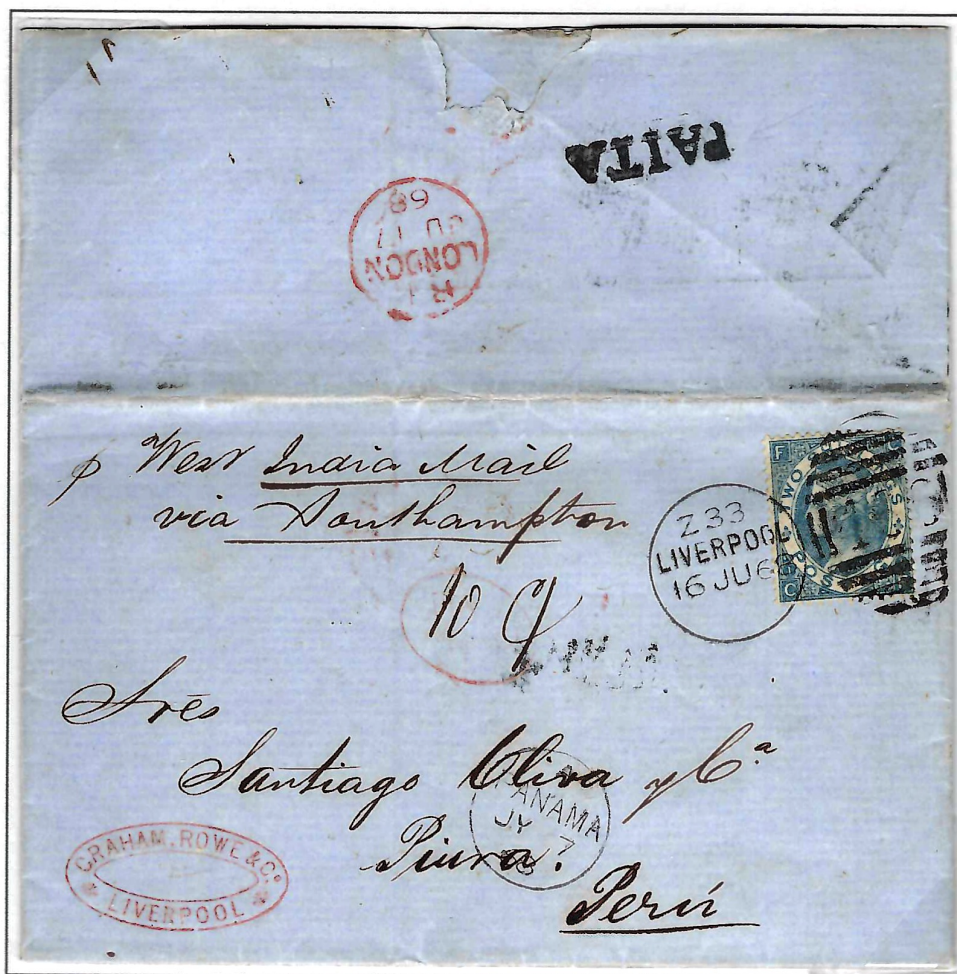 PAITA
68
JU 17
LONDON
R
p West India Mail
via Southampton
10 
Z 33
LIVERPOOL
16 JU 68
F
TWO
C
Srés
Santiago Oliva y Cª
Piura.
Perú
PANAMA
JY 7
GRAHAM, ROWE & Cº
LIVERPOOL